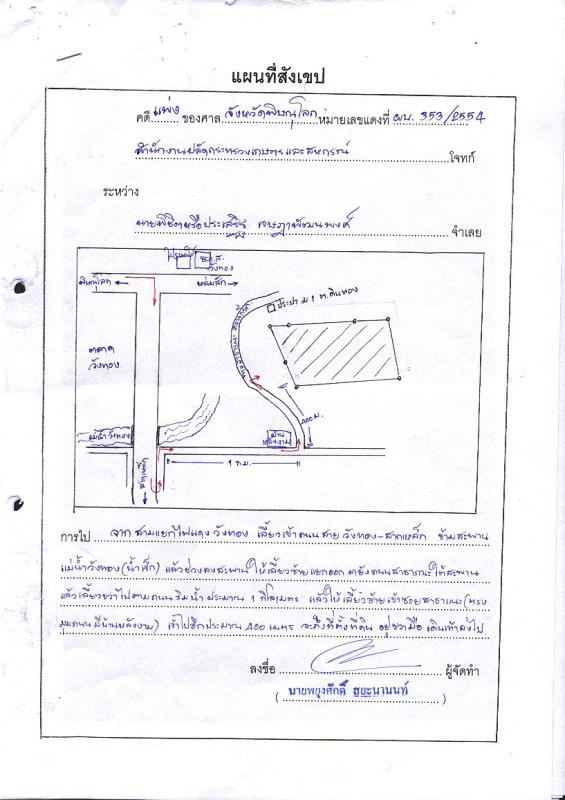 แผนที่สังเขป
คดี แพ่ง ของศาล จังหวัดพิษณุโลก หมายเลขแดงที่ ผบ. 353/2554
สำนักงานปลัดกระทรวงเกษตรและสหกรณ์ โจทก์
ระหว่าง
นายพิชิตหรือประเสริฐ เจษฎาพัฒนพงศ์ จำเลย
ไปรษณีย์
ธ.ก.ส.
วังทอง
พิษณุโลก
หล่มสัก
ประปา ม.1 ต.ดินทอง
ตลาด
วังทอง
แม่น้ำวังทอง
400 ม.
บ้าน
หลังงาม
1 กม.
สากเหล็ก
การไป จากสามแยกไฟแดงวังทอง เลี้ยวเข้าถนนสายวังทอง-สากเหล็ก ข้ามสะพาน
แม่น้ำวังทอง(น้ำเข็ก) แล้วช่วงลงสะพานให้เลี้ยวซ้ายแยกออกมายังถนนสาธารณะใต้สะพาน
แล้วเลี้ยวขวาไปตามถนนริมน้ำประมาณ 1 กิโลเมตร แล้วให้เลี้ยวซ้ายเข้าซอยสาธารณะ(ตรง
มุมถนนมีบ้านหลังงาม) เข้าไปอีกประมาณ 400 เมตร จะถึงที่ตั้งที่ดิน อยู่ขวามือ เดินเท้าลงไป
ลงชื่อ ผู้จัดทำ
(นายพยุงศักดิ์ สุยะนานนท์)